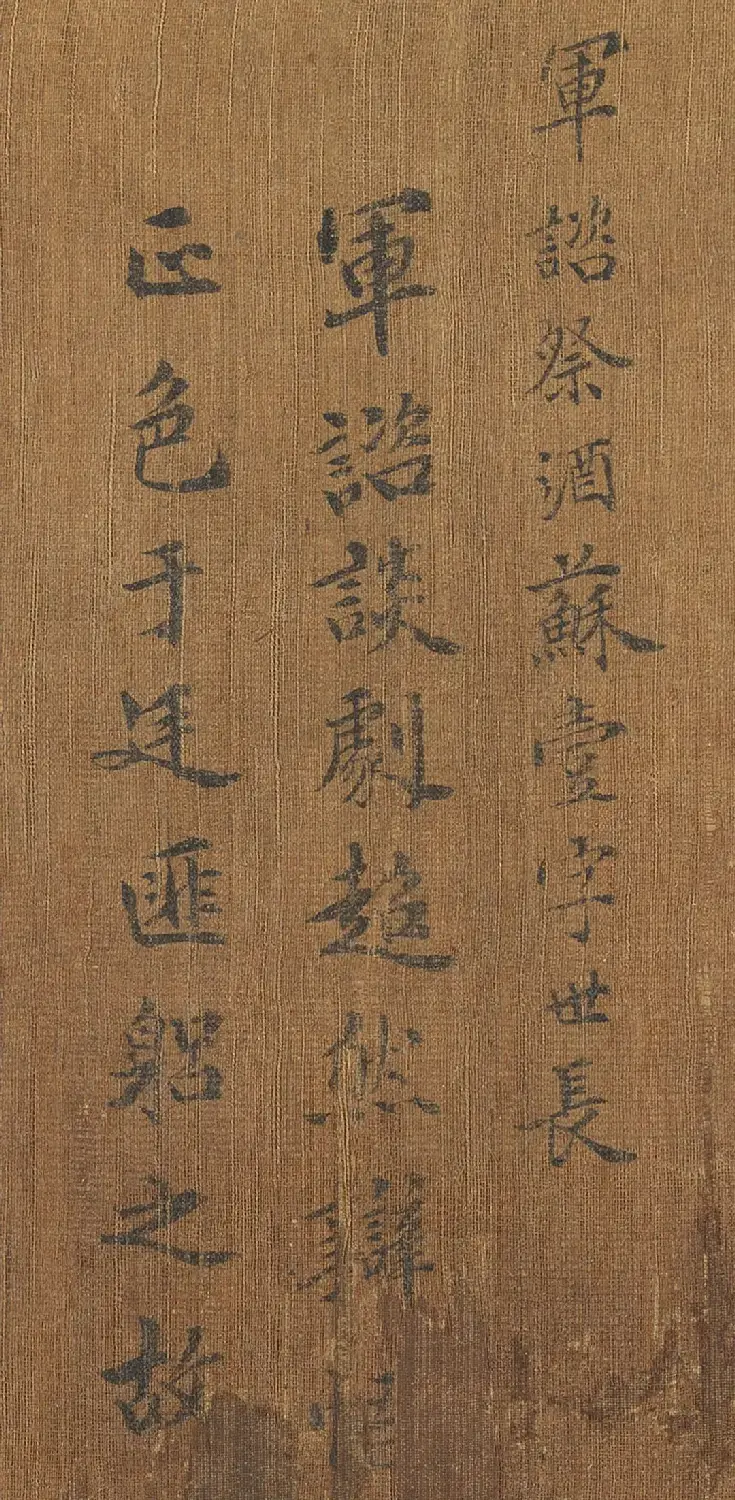 軍諮祭酒蘇壹字世長
軍諮談劇超然辯悟
正色于廷匪躳之故